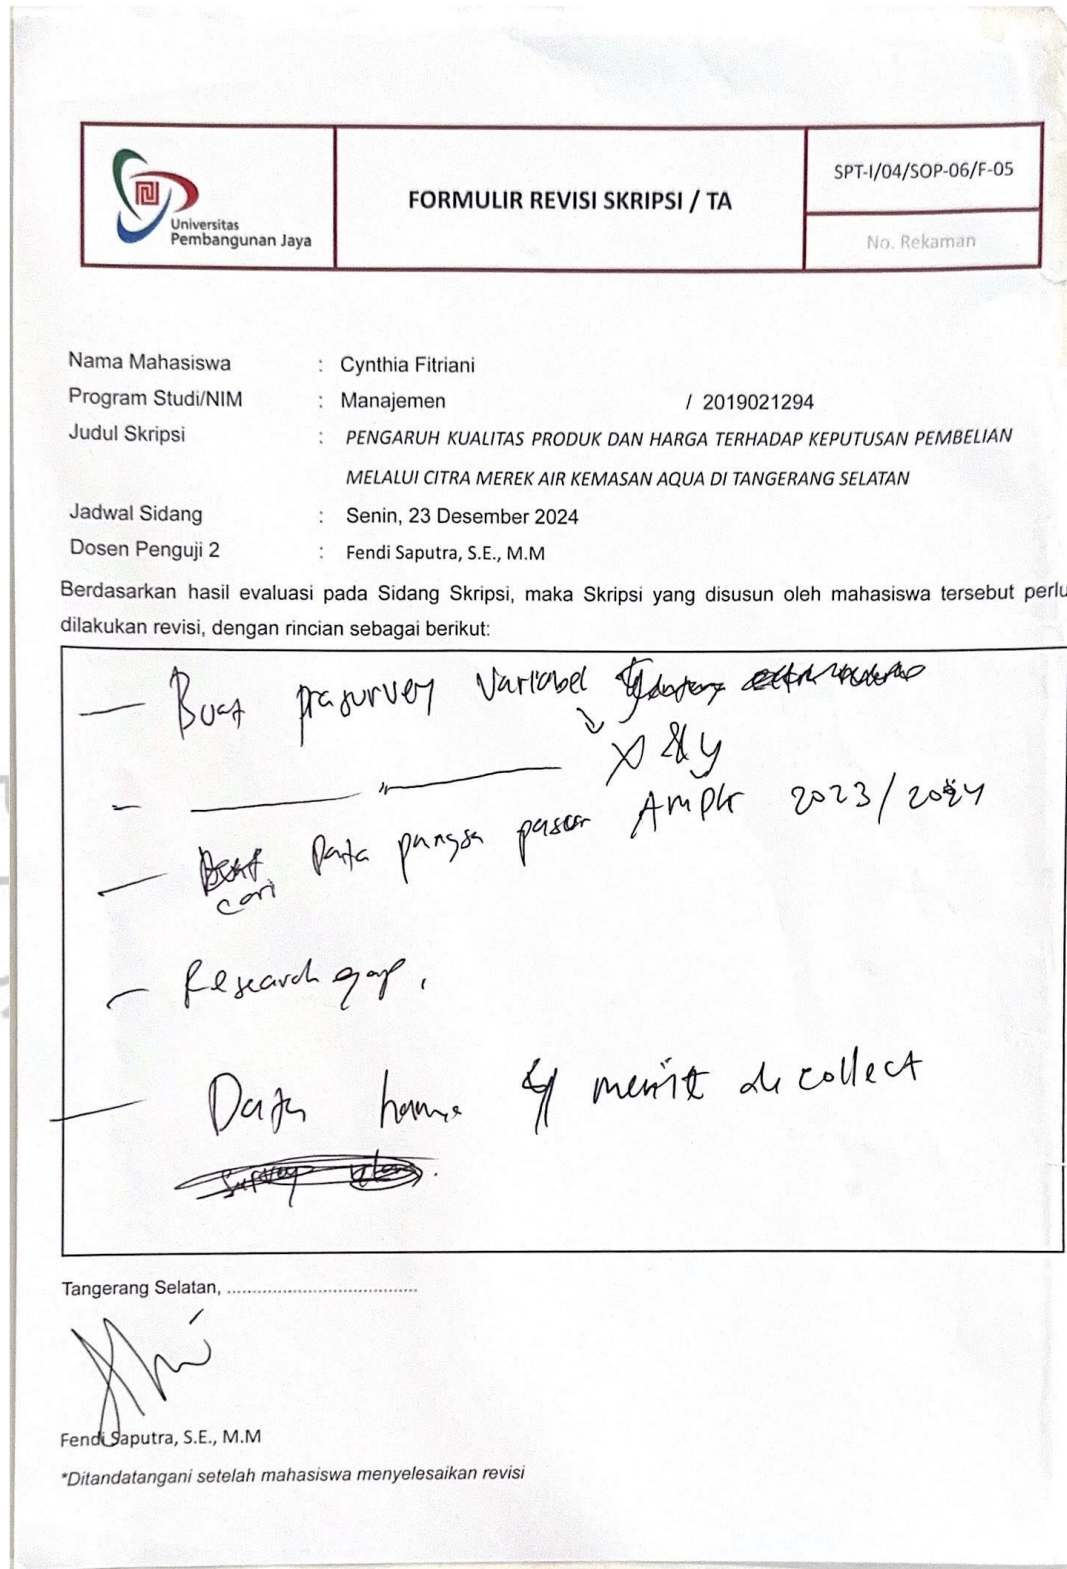 Universitas
Pembangunan Jaya
FORMULIR REVISI SKRIPSI / TA
SPT-I/04/SOP-06/F-05
No. Rekaman
Nama Mahasiswa : Cynthia Fitriani
Program Studi/NIM : Manajemen / 2019021294
Judul Skripsi : PENGARUH KUALITAS PRODUK DAN HARGA TERHADAP KEPUTUSAN PEMBELIAN
MELALUI CITRA MEREK AIR KEMASAN AQUA DI TANGERANG SELATAN
Jadwal Sidang : Senin, 23 Desember 2024
Dosen Penguji 2 : Fendi Saputra, S.E., M.M
Berdasarkan hasil evaluasi pada Sidang Skripsi, maka Skripsi yang disusun oleh mahasiswa tersebut perlu
dilakukan revisi, dengan rincian sebagai berikut:
— Buat prasurvey Variabel
X & y
- — " —
— cari Data pangsa pasar AMDK 2023/2024
— Research gap.
— Data di collect
Tangerang Selatan, ........................................
Fendi Saputra, S.E., M.M
*Ditandatangani setelah mahasiswa menyelesaikan revisi